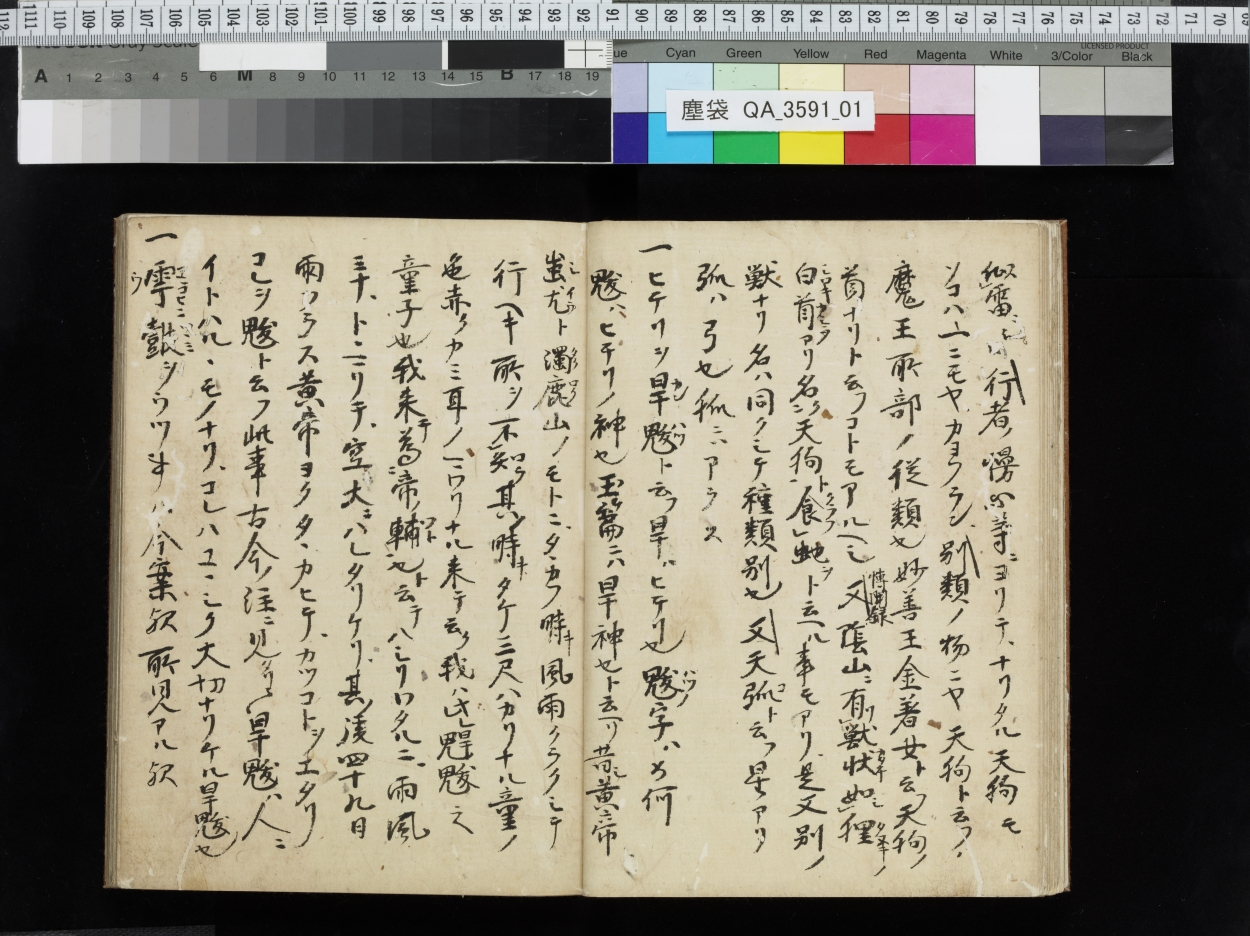 塵袋 QA_3591_01
Cyan Green Yellow Red Magenta White 3/Color Black
LICENSED PRODUCT
A 1 2 3 4 5 6 M 8 9 10 11 12 13 14 15 B 17 18 19
行者ノ慢心等ニヨリテ、ナリタル天狗モ
ソコハ一ニモヤカヨフラン、別類ノ物ニヤ天狗ト云フハ、
魔王所部ノ従類也妙善王金著女ト云天狗ノ
首ナリト云フコトモアルヘシ又陰山ニ有獣状如狸
白首アリ名ハ天狗食虵ト云ヘル事モアリ、是又別ノ
獣ナリ名ハ同クシテ種類別也又天弧ト云フ星アリ
弧ハ弓也狐ニハアラス
一ヒテリヲ旱魃ト云フ旱ハヒテリ也魃字ハ如何
魃ハヒテリノ神也玉篇ニハ旱神也ト云ヘリ昔シ黄帝
蚩尤ト濁鹿山ノモトニ、タタカフ時風雨クラクシテ
行ヘキ所ヲ不知其時タケ三尺ハカリナル童ノ
色赤クカミ耳ノ
童子也我来為帝輔也ト云テ
空
其後四十九日
雨フラス黄帝ヨクタタカヒテ、カツコトヲエタリ
コレヲ魃ト云フ此事古今ノ注ニ見タリ旱魃ハ人ニ
イトハルルモノナリ、コレハユユシク大切ナリケル旱魃也
一雩鼓ヲウツ
今案歟所見アル歟